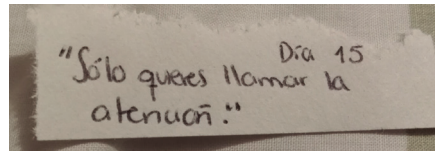 Día 15
"Sólo quieres llamar la
atención."